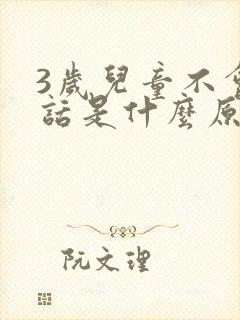 3歲兒童不
話是什麼原
阮文理